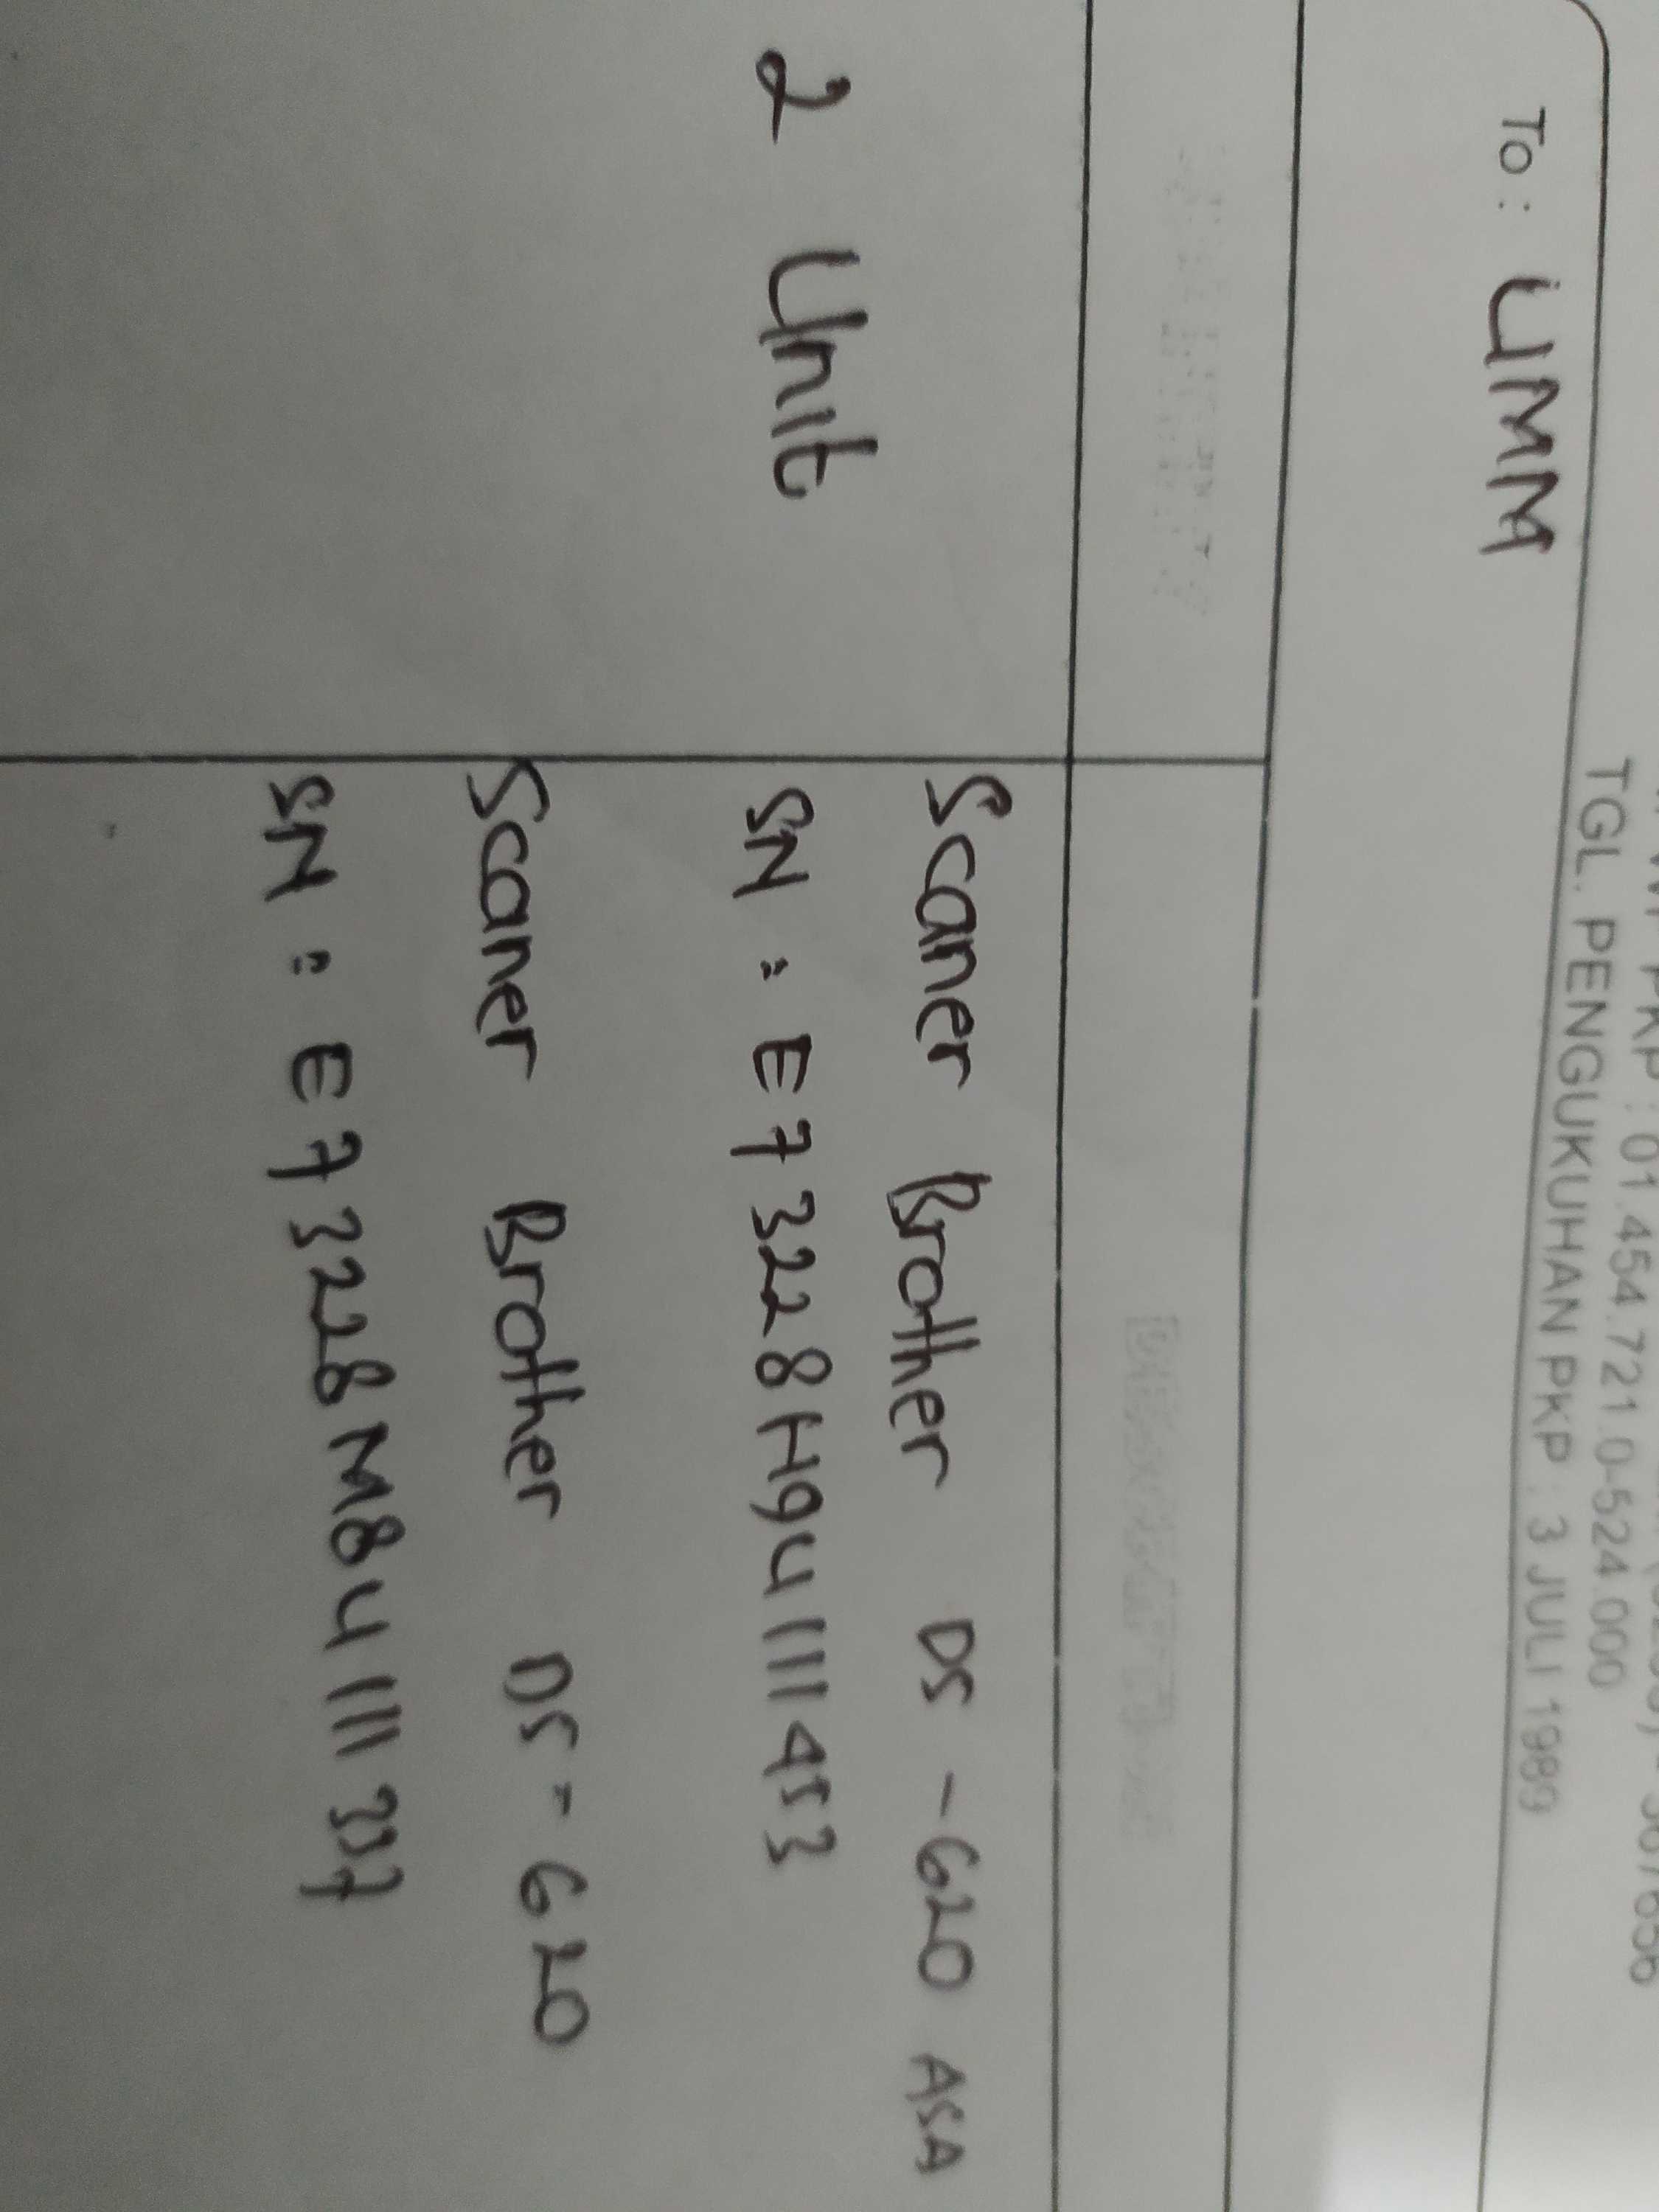 PKP : 01.454.721.0-524.000
TGL. PENGUKUHAN PKP : 3 JULI 1989
To : UMM
2 Unit
Scaner Brother DS - 620 ASA
SN : E73228H9U111453
Scaner Brother DS - 620
SN : E73228M8U111337